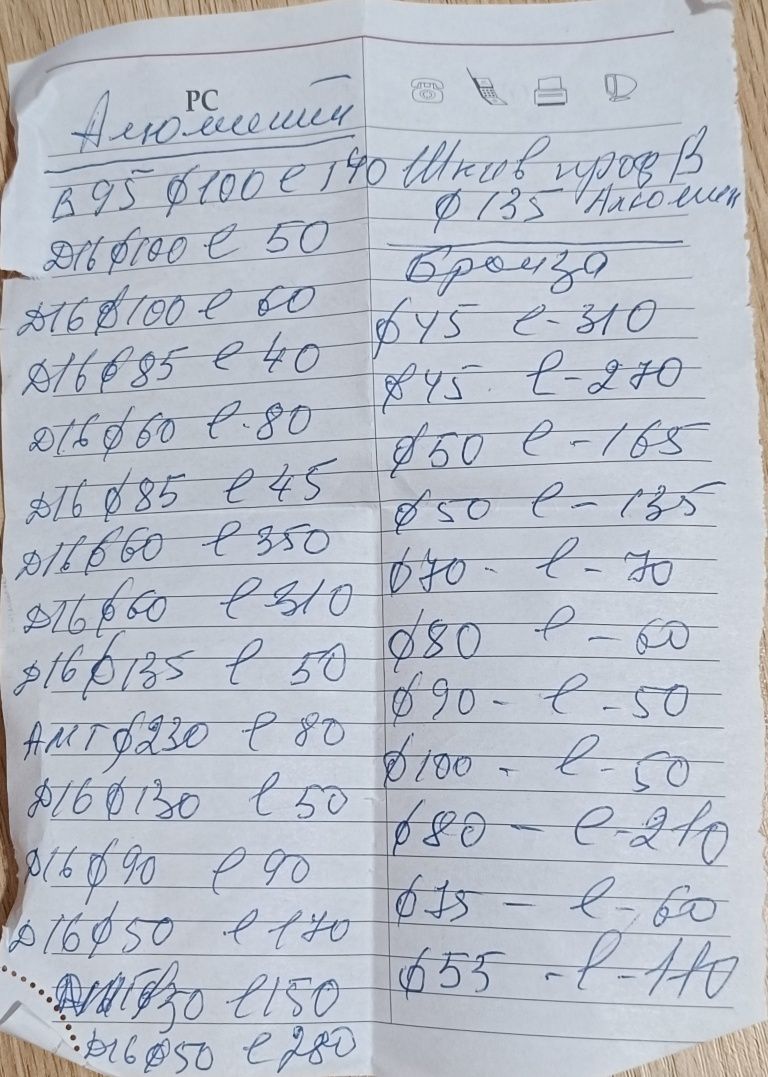 РС
Алюминий
В95 ϕ100 l 140
Д16 ϕ100 l 50
Д16 ϕ100 l 60
Д16 ϕ85 l 40
Д16 ϕ60 l-80
Д16 ϕ85 l 45
Д16 ϕ60 l 350
Д16 ϕ60 l 310
Д16 ϕ135 l 50
АМГ ϕ230 l 80
Д16 ϕ130 l 50
Д16 ϕ90 l 90
Д16 ϕ50 l 170
ϕ50 l 150
Д16 ϕ50 l 280
Шкив проф В
ϕ 135 Алюмин
Бронза
ϕ45 l-310
ϕ45 l-270
ϕ50 l-165
ϕ50 l-135
ϕ70 - l-70
ϕ80 l-60
ϕ90 - l-50
ϕ100 - l-50
ϕ80 - l-210
ϕ75 - l-60
ϕ55 - l-110